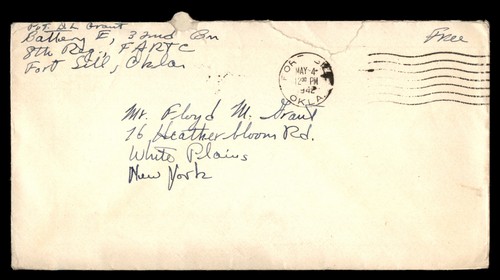 Pvt. H L Grant
Battery E, 32nd Bn
8th Reg., FARTC
Fort Sill, Okla.
Free
FORT SILL
MAY 4
12 30 PM
1942
OKLA.
Mr. Floyd M. Grant
76 Heatherbloom Rd.
White Plains
New York